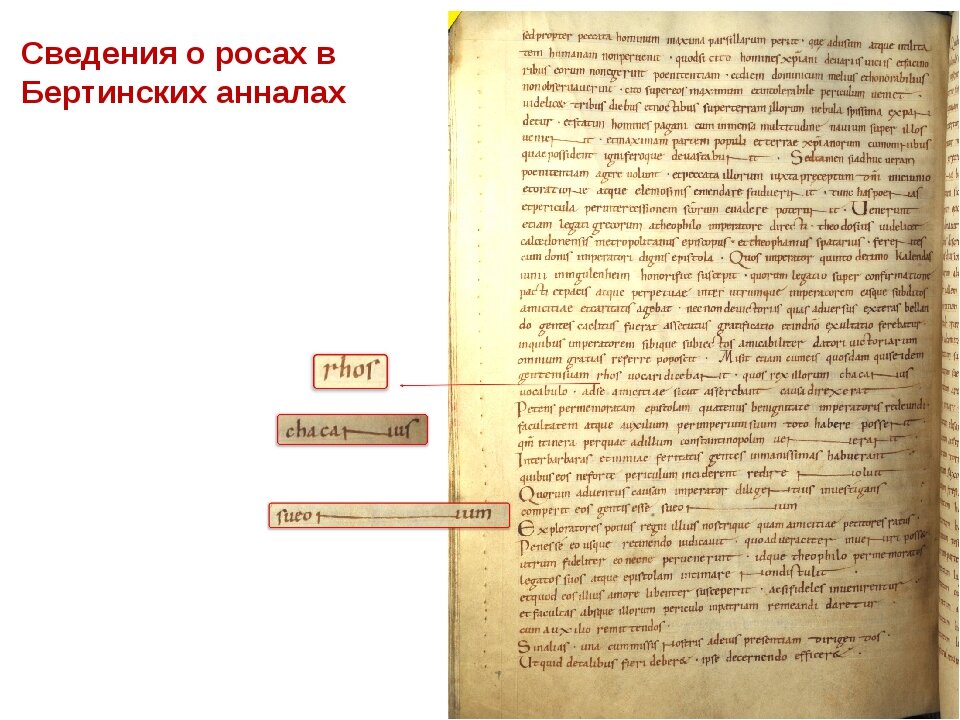 Сведения о росах в
Бертинских анналах
rhos
chacanus
sueonum
sed propter peccata hominum maxima pars illarum perit · que ad usum atque utilita
tem humanam non pervenit · quod si cito homines xpiani de variis viciis et facino
ribus eorum non egerint poenitentiam · et diem dominicum melius et honorabilius
non observaverint · cito super eos maximum et intolerabile periculum veniet
videlicet tribus diebus et noctibus super terram illorum nebula spissima expan
detur · et statim homines pagani cum inmensa multitudine navium super illos
venient · et maximam partem populi et terrae xpianorum cum omnibus
quae possident igni ferroque devastabunt · Sed tamen si adhuc veram
poenitentiam agere volunt · et peccata illorum iuxta preceptum dni ieiunio
et oratione atque elemosinis emendare studuerint · tunc has poenas
et pericula per intercessionem scorum evadere poterunt · Venerunt
etiam legati grecorum a theophilo imperatore directi · theodosius videlicet
calcedonensis metropolitanus episcopus · et theophanius spatarius · ferentes
cum donis imperatori dignis epistola · Quos imperator quinto decimo kalendas
iunii in ingulenheim honorifice suscepit · quorum legatio super confirmatione
pacti et pacis atque perpetuae inter utrumque imperatorem eique subditos
amicitiae et caritatis agebat · nec non de victoriis quas adversus exteras bellan
do gentes caelitus fuerat assecutus gratificatio et in dno exultatio ferebatur ·
in quibus imperatorem sibique subiectos amicabiliter datori victoriarum
omnium gratias referre poposcit · Misit etiam cum eis quosdam qui se idem
gentem suam rhos vocari dicebant · quos rex illorum chacanus
vocabulo · ad se amicitiae sicut asserebant causa direxerat
Petens per memoratam epistolam quatenus benignitate imperatoris redeundi
facultatem atque auxilium per imperium suum toto habere possent
qm itinera per quae ad illum constantinopolim venerant
Inter barbaras et nimiae feritatis gentes inmanissimas habuerant
quibus eos ne forte periculum inciderent redire noluit
Quorum adventus causam imperator diligentius investigans
comperit eos gentis esse sueonum
Exploratores potius regni illius nostrique quam amicitiae petitores ratus ·
Penes se eo usque retinendo iudicavit · quo ad veraciter inveniri posset
utrum fideliter eo necne pervenerint · idque theophilo per memoratos
legatos suos atque epistolam intimare non distulit
et quod eos illius amore libenter susceperit · ac si fideles invenirentur
et facultas absque illorum periculo in patriam remeandi daretur
cum auxilio remittendos
Sin alias · una cum missis nostris ad eius presentiam dirigendos ·
Ut quid de talibus fieri deberet · ipse decernendo efficeret